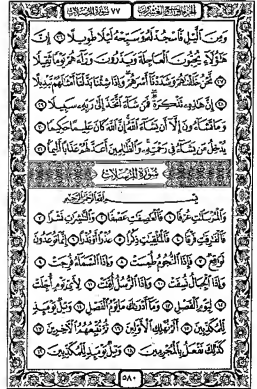 الجزء التاسع والعشرون ٧٧ سورة المرسلات
وَمِنَ ٱلَّيۡلِ فَٱسۡجُدۡ لَهُۥ وَسَبِّحۡهُ لَيۡلٗا طَوِيلًا ٢٦ إِنَّ
هَٰٓؤُلَآءِ يُحِبُّونَ ٱلۡعَاجِلَةَ وَيَذَرُونَ وَرَآءَهُمۡ يَوۡمٗا ثَقِيلٗا ٢٧
نَّحۡنُ خَلَقۡنَٰهُمۡ وَشَدَدۡنَآ أَسۡرَهُمۡۖ وَإِذَا شِئۡنَا بَدَّلۡنَآ أَمۡثَٰلَهُمۡ تَبۡدِيلًا ٢٨
إِنَّ هَٰذِهِۦ تَذۡكِرَةٞۖ فَمَن شَآءَ ٱتَّخَذَ إِلَىٰ رَبِّهِۦ سَبِيلٗا ٢٩
وَمَا تَشَآءُونَ إِلَّآ أَن يَشَآءَ ٱللَّهُۚ إِنَّ ٱللَّهَ كَانَ عَلِيمًا حَكِيمٗا ٣٠
يُدۡخِلُ مَن يَشَآءُ فِي رَحۡمَتِهِۦۚ وَٱلظَّٰلِمِينَ أَعَدَّ لَهُمۡ عَذَابًا أَلِيمَۢا ٣١
سُورَةُ المُرۡسَلَاتِ
بِسۡمِ ٱللَّهِ ٱلرَّحۡمَٰنِ ٱلرَّحِيمِ
وَٱلۡمُرۡسَلَٰتِ عُرۡفٗا ١ فَٱلۡعَٰصِفَٰتِ عَصۡفٗا ٢ وَٱلنَّٰشِرَٰتِ نَشۡرٗا ٣
فَٱلۡفَٰرِقَٰتِ فَرۡقٗا ٤ فَٱلۡمُلۡقِيَٰتِ ذِكۡرًا ٥ عُذۡرًا أَوۡ نُذۡرًا ٦ إِنَّمَا تُوعَدُونَ
لَوَٰقِعٞ ٧ فَإِذَا ٱلنُّجُومُ طُمِسَتۡ ٨ وَإِذَا ٱلسَّمَآءُ فُرِجَتۡ ٩
وَإِذَا ٱلۡجِبَالُ نُسِفَتۡ ١٠ وَإِذَا ٱلرُّسُلُ أُقِّتَتۡ ١١ لِأَيِّ يَوۡمٍ أُجِّلَتۡ ١٢
لِيَوۡمِ ٱلۡفَصۡلِ ١٣ وَمَآ أَدۡرَىٰكَ مَا يَوۡمُ ٱلۡفَصۡلِ ١٤ وَيۡلٞ يَوۡمَئِذٖ
لِّلۡمُكَذِّبِينَ ١٥ أَلَمۡ نُهۡلِكِ ٱلۡأَوَّلِينَ ١٦ ثُمَّ نُتۡبِعُهُمُ ٱلۡأٓخِرِينَ ١٧
كَذَٰلِكَ نَفۡعَلُ بِٱلۡمُجۡرِمِينَ ١٨ وَيۡلٞ يَوۡمَئِذٖ لِّلۡمُكَذِّبِينَ ١٩
٥٨٠